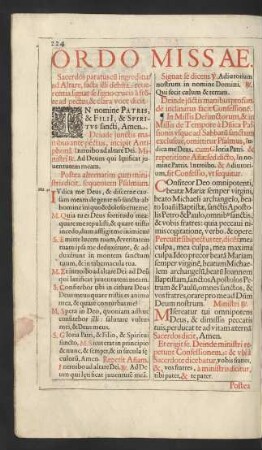 224
ORDO MISSAE.
Sacerdos paratus cū ingreditur
ad Altare, facta illi debita reve-
rentia, signat se signo crucis à frō-
te ad pectus, & clara voce dicit.
IN nomine PATRIS,
& FILII, & SPIRI-
TVS sancti, Amen.
Deinde junctis ma-
nibus ante pectus, incipit Anti-
phonā. Introibo ad altare Dei. Mi-
nistri ℟. Ad Deum qui lætificat
juventutem meam.
Postea alternatim cum mini-
stris dicit sequentem Psalmum.
IUdica me Deus, & discerne cau-
sam meam de gente nō sancta: ab
homine iniquo & doloso erue me.
M. Quia tu es Deus fortitudo mea:
quare me repulisti, & quare tristis
incedo, dum affligit me inimicus?
S. Emitte lucem tuam, & veritatem
tuam: ipsa me deduxerunt, & ad-
duxerunt in montem sanctum
tuum, & in tabernacula tua.
M. Et introibo ad altare Dei: ad Deū
qui lætificat juventutem meam.
S. Confitebor tibi in cithara Deus
Deus meus: quare tristis es anima
mea, & quare conturbas me?
M. Spera in Deo, quoniam adhuc
confitebor illi: salutare vultus
mei, & Deus meus.
S. Gloria Patri, & Filio, & Spiritui
sancto. M. Sicut erat in principio
& nunc, & semper, & in sæcula sæ-
culorū, Amen. Repetit Añam.
Introibo ad altare Dei. ℟. Ad De-
um qui lætificat juventutē meā.
Signat se dicens ℣. Adjutorium
nostrum in nomine Domini. ℟.
Qui fecit cælum & terram.
Deinde junctis manibus profundè
inclinatus facit Confessionē.
¶ In Missis Defunctorum, & in
Missis de Tempore à Dñica Passi-
onis usque ad Sabbatū sanctum
exclusive, omittitur Psalmus, Ju-
dica me Deus, cum Gloria Patri, &
repetitione Añæ: sed dicto, In no-
mine Patris, Introibo, & Adjutori-
um, fit Confessio, ut sequitur.
COnfiteor Deo omnipotenti,
beatæ Mariæ semper virgini,
beato Michaeli Archangelo, beato
Joanni Baptistæ, sanctis Aposto-
lis Petro & Paulo, omnibus Sanctis,
& vobis fratres: quia peccavi ni-
mis cogitatione, verbo, & opere:
Percutit sibi pectus ter, dicens: mea
culpa, mea culpa, mea maxima
culpa. Ideo precor beatam Mariam
semper virginem, beatum Michae-
lem archangelū, beatū Joannem
Baptistam, sanctos Apostolos Pe-
trum & Paulū, omnes sanctos, &
vos fratres, orare pro me ad Domi-
num Deum nostrum. Ministri ℟.
MIsereatur tui omnipotens
Deus, & dimissis peccatis
tuis, perducat te ad vitam æternā.
Sacerdos dicit, Amen.
Et erigit se. Deinde ministri re-
petunt Confessionem, & ubi à
Sacerdote dicebatur, vobis fratres,
& vos fratres, à ministris dicitur,
tibi pater, & te pater.
Postea